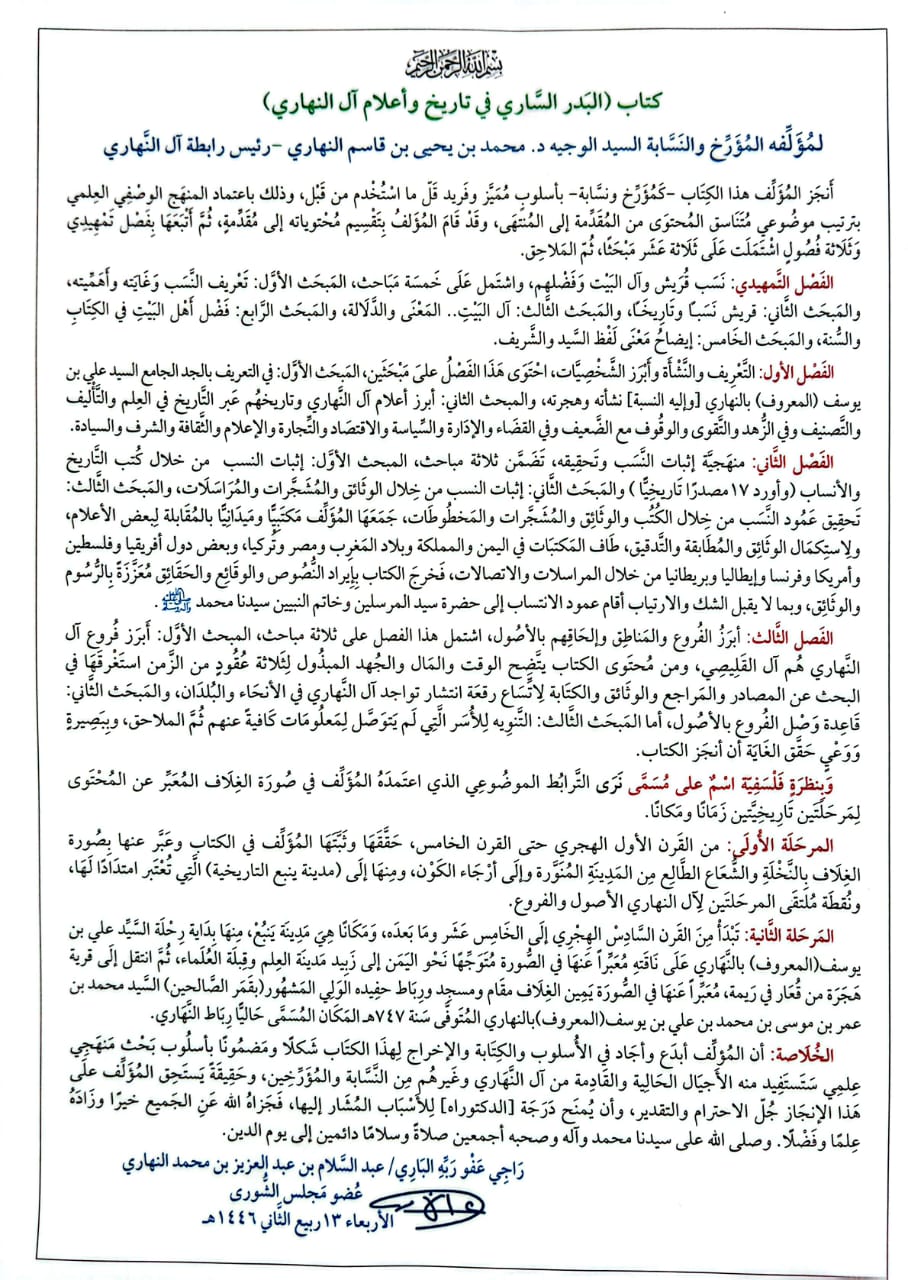 بسم الله الرحمن الرحيم
كتاب (البَدر السَّاري في تاريخ وأعلام آل النهاري)
لمُؤَلِّفه المُؤَرِّخ والنَسَّابة السيد الوجيه د. محمد بن يحيى بن قاسم النهاري -رئيس رابطة آل النَّهاري
أَنجَز المُؤَلِّف هذا الكِتَاب -كَمُؤَرِّخ ونسَّابة- بأسلوبٍ مُمَيَّز وفَريد قَلّ ما اسْتُخْدم من قَبْل، وذلك باعتماد المنهَج الوصْفِي العِلمي
بترتيب موضُوعي مُتَنَاسق المُحتوَى من المُقدِّمة إلى المُنتَهَى، وقَدْ قَامَ المُؤَلفُ بتَقْسِيم مُحْتوياته إلى مُقَدِّمةٍ، ثُمَّ أَتْبَعَهَا بِفَصْل تَمْهِيدِي
وَثَلَاثة فُصُولٍ اشْتَمَلَت عَلَى ثَلَاثَة عَشَر مَبْحَثًا، ثُمّ المَلاحِق.
الفَصْل التَّمهِيدي: نَسَب قُرَيش وآل البَيْت وَفَضْلهِم، واشتَمل عَلَى خَمسَة مَبَاحث، المَبحَث الأوَّل: تَعْريف النَّسَب وَغَايَته وأهَمِّيته،
والمَبحَث الثَّاني: قريش نَسَبـًا وتَاريخـًا، والمَبحَث الثَّالث: آل البَيْتِ.. المَعْنَى والدَّلَالة، والمَبحَث الرَّابع: فَضْل أهْل البَيْت في الكِتَابِ
والسُّنة، والمَبحَث الخَامس: إيضاحُ مَعْنَى لَفْظ السَّيد والشَّريف.
الفَصْل الأول: التَّعْرِيف والنَّشْأَة وأَبْرَز الشَّخْصِيَّات، احْتَوَى هَذَا الفَصْلُ علىَ مَبْحَثَين، المَبحَث الأوَّل: في التعريف بالجد الجامع السيد علي بن
يوسف (المعروف) بالنهاري [وإليه النسبة] نشأته وهجرته، والمبحث الثاني: أبرز أعلام آل النَّهاري وتاريخهُم عَبر التَّاريخ في العِلم والتَّأليف
والتَّصنيف وفي الزُّهد والتَّقوى والوقُوف مع الضَّعيف وفي القضاء والإدَارة والسِّياسة والاقتصَاد والتِّجارة والإعلام والثَّقافة والشرف والسيادة.
الفَصْل الثَّاني: منهَجيَّة إثبات النَّسَب وتَحقِيقه، تَضَمَّن ثلاثة مباحث، المبحث الأوَّل: إثبات النسب من خلال كُتب التَّاريخ
والأنساب (وأورد ١٧ مصدرًا تَاريخِيًّا) والمَبحَث الثَّاني: إثبات النسب من خِلال الوثَائق والمُشَجَّرات والمُرَاسَلَات، والمَبحَث الثَّالث:
تَحقِيق عَمُود النَّسَب من خِلال الكُتُب والوثَائق والمُشَجَّرات والمَخطُوطَات، جَمَعَهَا المُؤَلِّف مَكتَبِيًّا ومَيدَانِيًّا بالمُقَابلة لِبعض الأعلام،
ولاِستِكمَال الوثَائِق والمُطَابقة والتَّدقيق، طَاف المَكتبَات في اليمن والمملكة وبلاد المَغرِب ومصر وتُركيا، وبعض دول أفريقيا وفلسطين
وأمريكا وفرنسا وإيطاليا وبريطانيا من خلال المراسلات والاتصالات، فَخرجَ الكتاب بِإيراد النُّصُوص والوقَائِع والحَقَائِق مُعَزَّزَةً بِالرُّسُوم
والوثَائِق، وبما لا يقبل الشك والارتياب أقام عمود الانتساب إلى حضرة سيد المرسلين وخاتم النبيين سيدنا محمد ﷺ.
الفَصل الثَّالث: أبرَزُ الفُروع والمَناطِق وإلحَاقِهم بالأصُول، اشتمل هذا الفصل على ثلاثة مباحث، المبحث الأوَّل: أَبرَز فُروع آل
النَّهاري هُم آل القَلِيصِي، ومن مُحتَوى الكتاب يتَّضِح الوقت والمَال والجُهد المبذُول لِثلاثة عُقُودٍ من الزَّمن استَغْرقَهَا في
البحث عن المصادر والمَراجع والوثَائق والكتَابة لِاتِّسَاع رقعَة انتشار تواجد آل النَّهاري في الأنحَاء والبُلدَان، والمَبحَث الثَّاني:
قَاعِدة وَصْل الفُروع بالأصُول، أما المَبحَث الثَّالث: التَّنويه لِلأُسَر الَّتِي لَم يَتَوَصَّل لِمَعلُومَات كَافيةً عنهم ثُمَّ الملاحق، وبِبَصِيرةٍ
وَوَعْيٍ حَقَّق الغَايَة أن أنجَز الكتاب.
وَبِنظرَةٍ فَلْسَفِيّة اسْمٌ على مُسَمَّى نَرَى التَّرابُط الموضُوعي الذي اعتمدَهُ المُؤَلِّف في صُورَة الغِلَاف المُعَبِّر عن المُحْتَوى
لِمَرحَلَتَين تَاريخِيَّتَين زَمَانًا ومَكانًا.
المرحَلَة الأُولَى: من القَرن الأول الهجري حتى القرن الخامس، حَقَّقَهَا وثَبَّتَهَا المُؤَلِّف في الكتاب وعَبَّر عنها بِصُورة
الغِلَاف بالنَّخْلَة والشُّعَاع الطَّالِع مِن المَدِينَةِ المُنَوَّرة وإلى أرْجَاء الكَوْن، ومِنهَا إلَى (مدينة ينبع التاريخية) الَّتِي تُعْتَبر امتدَادًا لَهَا،
ونُقطَة مُلتقَى المرحَلتَين لِآل النهاري الأصول والفروع.
المَرحَلة الثَّانية: تَبْدَأُ مِنَ القَرن السَادِسْ الهِجْرِي إلَى الخَامِس عَشَر ومَا بَعدَه، وَمَكَانًا هِيَ مَدِينَة يَنبُعْ، مِنهَا بدَاية رِحْلَة السَّيِّد علي بن
يوسف(المعروف) بالنَّهاري عَلَى نَاقَتِهِ مُعَبِّراً عَنهَا في الصُّورَة مُتَوَجِّهًا نَحْو اليَمَن إلى زَبِيد مَدينَة العِلم وقِبلَة العُلَماء، ثُمَّ انتقل إلى قرية
هَجَرَة من قُعَار في رَيمة، مُعَبِّراً عَنهَا في الصُّورَة يَمِين الغِلَاف مقَام ومسجد ورِبَاط حَفِيده الوَلِي المَشهُور(بقَمَر الصَّالحين) السَّيد محمد بن
عمر بن موسى بن محمد بن علي بن يوسف(المعروف)بالنهاري المُتوفَّى سَنة ٧٤٧هـ المَكَان المُسَمَّى حَاليًّا رِبَاط النَّهَاري.
الخُلَاصة: أن المُؤَلِّف أبدَع وأجَاد في الأُسلوب والكِتَابة والإخراج لِهذَا الكتاب شَكلًا ومَضمُونًا بأسلُوب بَحْث مَنهَجِي
عِلمِي سَتَستَفِيد منه الأجيَال الحَالِية والقَادِمة من آل النَّهاري وَغَيرهُم مِن النَّسَّابة والمُؤَرِّخِين، وحَقِيقَةً يَستَحِق المُؤَلِّف عَلَى
هَذا الإنجَاز جُلّ الاحترام والتقدير، وأن يُمنَح دَرَجَة [الدكتوراه] لِلأَسْبَاب المُشَار إليها، فَجَزاهُ الله عَنِ الجَميع خيرًا وزَادَهُ
عِلمًا وفَضْلًا. وصلى الله على سيدنا محمد وآله وصحبه أجمعين صلاةً وسلامًا دائمين إلى يوم الدين.
رَاجِي عَفْو رَبِّهِ البَارِي/ عبد السَّلام بن عبد العزيز بن محمد النهاري
عُضو مَجلس الشُّورى
الأربعاء ١٣ ربيع الثَّاني ١٤٤٦هـ